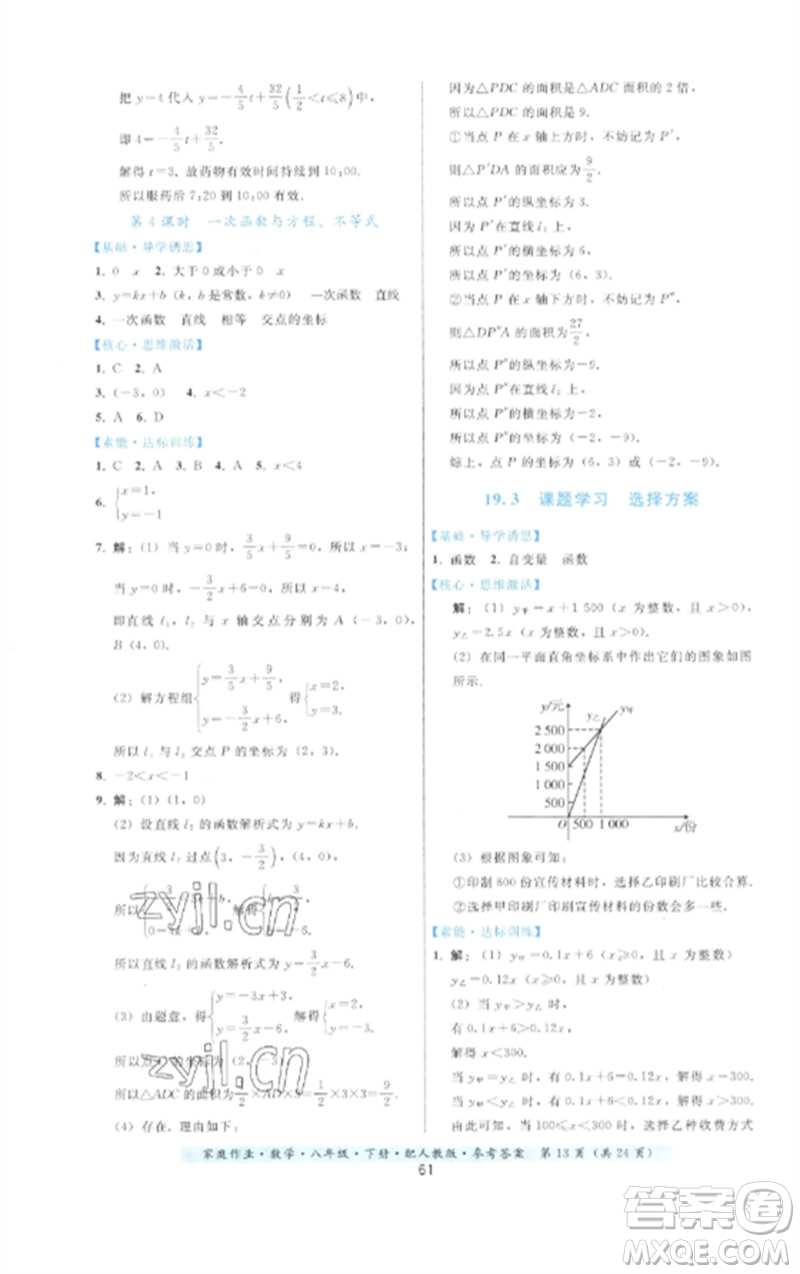 把 y=4 代入 y=-4/5t+32/5(1/2<t≤8)中,
即 4=-4/5t+32/5.
解得 t=3. 故药物有效时间持续到 10:00.
所以服药后 7:20 到 10:00 有效.
第 4 课时 一次函数与方程、不等式
【基础·导学诱思】
1. 0 x 2. 大于 0 或小于 0 x
3. y=kx+b(k, b 是常数, k≠0) 一次函数 直线
4. 一次函数 直线 相等 交点的坐标
【核心·思维激活】
1. C 2. A
3. (-3, 0) 4. x<-2
5. A 6. D
【素能·达标训练】
1. C 2. A 3. A 4. A 5. x<4
6. {x=1,
y=-1
7. 解: (1) 当 y=0 时, 3/5x+9/5=0, 所以 x=-3;
当 y=0 时, -3/2x+6=0, 所以 x=4,
即直线 l₁, l₂ 与 x 轴交点分别为 A(-3, 0),
B(4, 0).
(2) 解方程组{y=3/5x+9/5,
y=-3/2x+6 得{x=2,
y=3,
所以 l₁ 与 l₂ 交点 P(2, 3).
8. -2<x<-1
9. 解: (1) (1, 0)
(2) 设直线 l₂ 的函数解析式为 y=kx+b.
因为直线 l₂ 过点(3, -3/2), (4, 0),
所以
所以直线 l₂ 的函数解析式为 y=3/2x-6.
(3) 由题意, 得{y=-3x+3,
y=3/2x-6, 解得{x=2,
y=-3,
所以△ADC 的面积为 1/2×AD×3=1/2×3×3=9/2.
(4) 存在, 理由如下:
因为△PDC 的面积是△ADC 面积的 2 倍,
所以△PDC 的面积是 9.
①当点 P 在 x 轴上方时, 不妨记为 P′,
则△P′DA 的面积应为 9/2.
所以点 P′的纵坐标为 3.
因为点 P′在直线 l₂ 上,
所以点 P′的横坐标为 6.
所以点 P′的坐标为 (6, 3).
②当点 P 在 x 轴下方时, 不妨记为 P″,
则△DP″A 的面积为 27/2,
所以点 P″的纵坐标为-9.
因为点 P″在直线 l₂ 上,
所以点 P″的横坐标为-2,
所以点 P″的坐标为 (-2, -9).
综上, 点 P 的坐标为 (6, 3) 或 (-2, -9).
19.3 课题学习 选择方案
【基础·导学诱思】
1. 函数 2. 自变量 函数
【核心·思维激活】
解: (1) y甲=x+1 500 (x 为整数, 且 x>0),
y乙=2.5x (x 为整数, 且 x>0).
(2) 在同一平面直角坐标系中作出它们的图象如图
所示.
y/元
y乙
y甲
2 500
2 000
1 500
1 000
500
O 500 1 000 x/份
(3) 根据图象可知:
①印制 800 份宣传材料时, 选择乙印刷厂比较合算.
②选择甲印刷厂印刷宣传材料的份数会多一些.
【素能·达标训练】
1. 解: (1) y甲=0.1x+6 (x≥0, 且为整数)
y乙=0.12x (x≥0, 且为整数)
(2) 当 y甲>y乙 时,
有 0.1x+6>0.12x,
解得 x<300.
当 y甲=y乙 时, 有 0.1x+6=0.12x, x=300.
当 y甲<y乙 时, 有 0.1x+6<0.12x,
解得 x>300.
家庭作业·数学·八年级·下册·配人教版·参考答案 第 13 页 (共 24 页)
61
zyjl.cn
zyjl.cn
答案圈
MXQE.COM